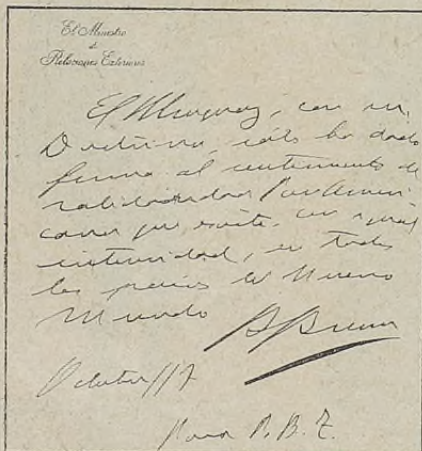 El Ministro
de
Relaciones Exteriores
El Uruguay, con su
Doctrina, sólo ha dado
forma al sentimiento de
solidaridad Pan Ameri
cana que existe, con igual
intensidad, en todos
los países del Nuevo
Mundo
B Brum
Octubre //17
Para P. B. T.